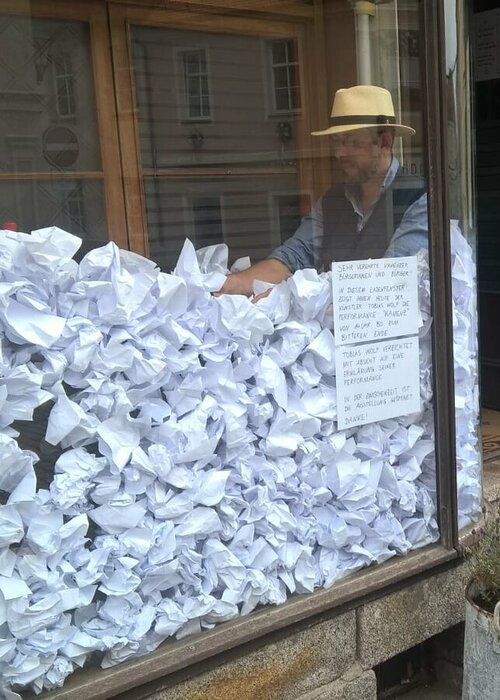 SEHR VEREHRTE KAMENZER
BÜRGERINNEN UND BÜRGER!
IN DIESEM LADENFENSTER
ZEIGT IHNEN HEUTE DER
KÜNSTLER TOBIAS WOLF DIE
PERFORMANCE "KAMENZ"
VON BIS ZUM
BITTEREN ENDE.
TOBIAS WOLF VERZICHTET
MIT ABSICHT AUF EINE
ERKLÄRUNG SEINER
PERFORMANCE
IN DER ZWISCHENZEIT IST
DIE AUSSTELLUNG GEÖFFNET
DANKE!